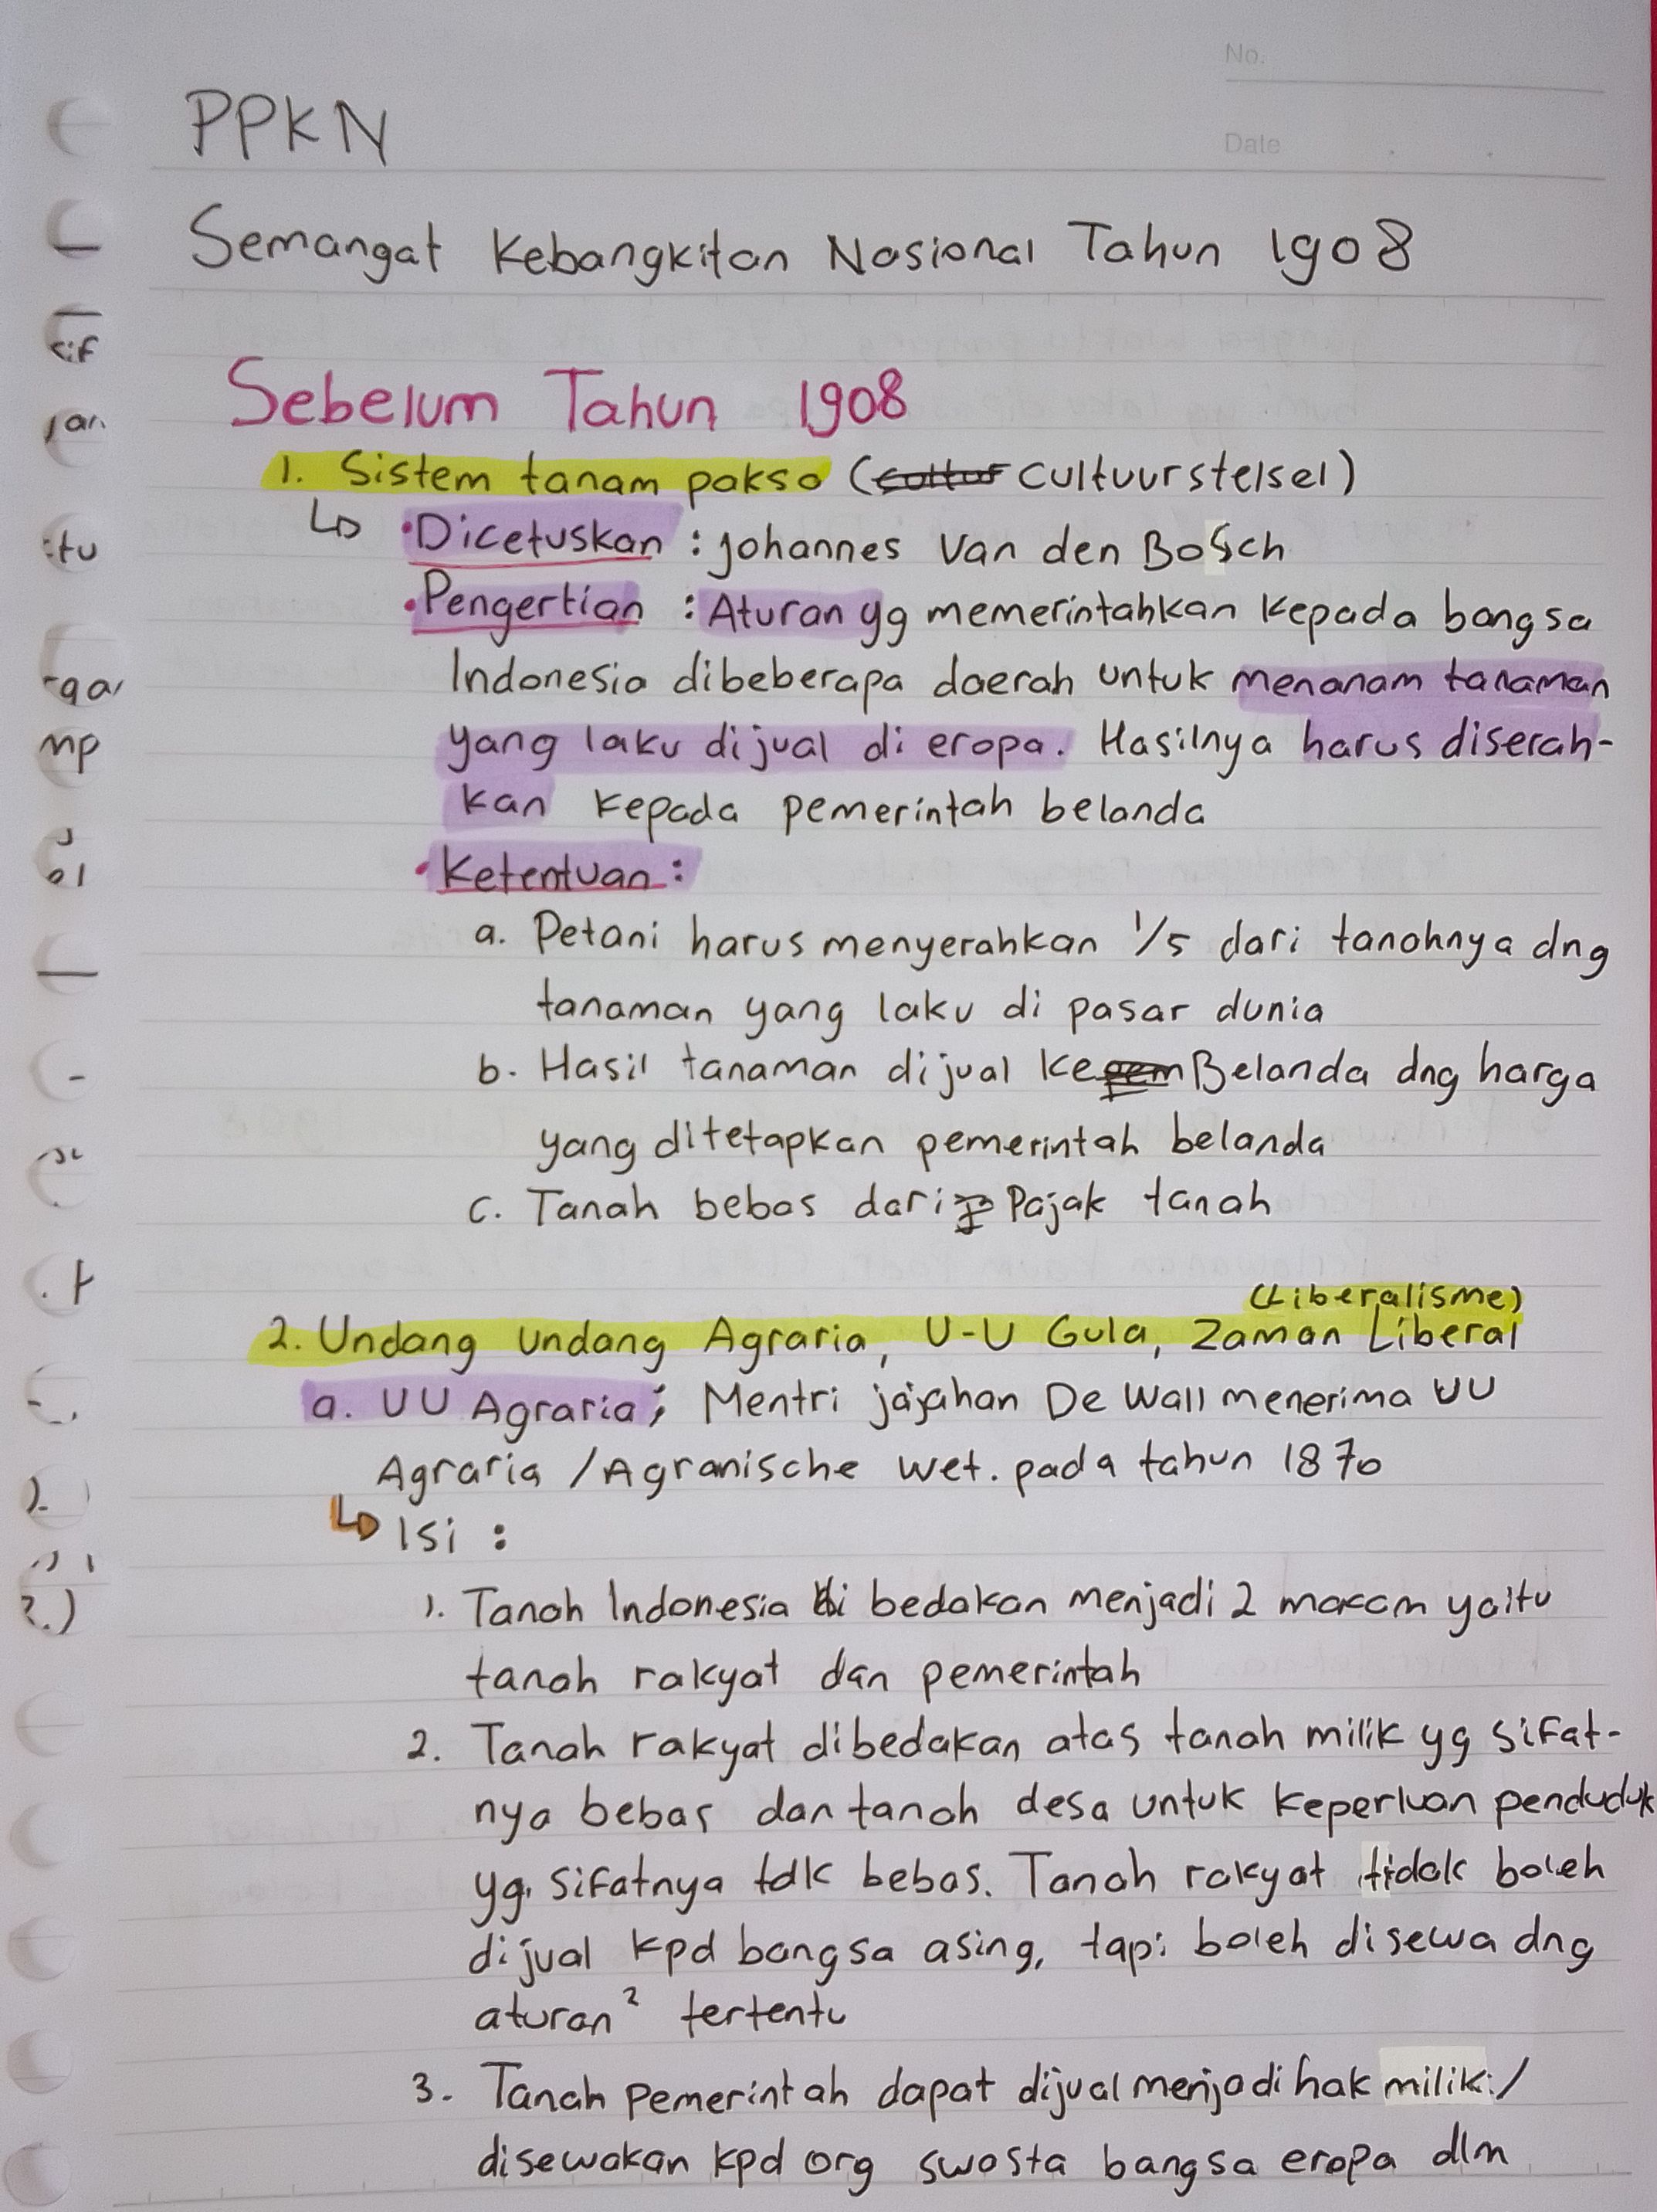 No.
Date
PPKN
Semangat Kebangkitan Nasional Tahun 1908
Sebelum Tahun 1908
1. Sistem tanam paksa (Cultuurstelsel)
• Dicetuskan : Johannes Van den Bosch
• Pengertian : Aturan yg memerintahkan kepada bangsa
Indonesia dibeberapa daerah untuk menanam tanaman
yang laku dijual di eropa. Hasilnya harus diserah-
kan kepada pemerintah belanda
• Ketentuan :
a. Petani harus menyerahkan 1/5 dari tanahnya dng
tanaman yang laku di pasar dunia
b. Hasil tanaman dijual ke Belanda dng harga
yang ditetapkan pemerintah belanda
c. Tanah bebas dari Pajak tanah
(Liberalisme)
2. Undang undang Agraria, U-U Gula, Zaman Liberal
a. UU Agraria ; Mentri jajahan De Wall menerima UU
Agraria / Agranische wet. pada tahun 1870
Isi :
1. Tanah Indonesia di bedakan menjadi 2 macam yaitu
tanah rakyat dan pemerintah
2. Tanah rakyat dibedakan atas tanah milik yg sifat-
nya bebas dan tanah desa untuk keperluan penduduk
yg sifatnya tdk bebas. Tanah rakyat tidak boleh
dijual kpd bangsa asing, tapi boleh disewa dng
aturan² tertentu
3. Tanah pemerintah dapat dijual menjadi hak milik /
disewakan kpd org swasta bangsa eropa dlm